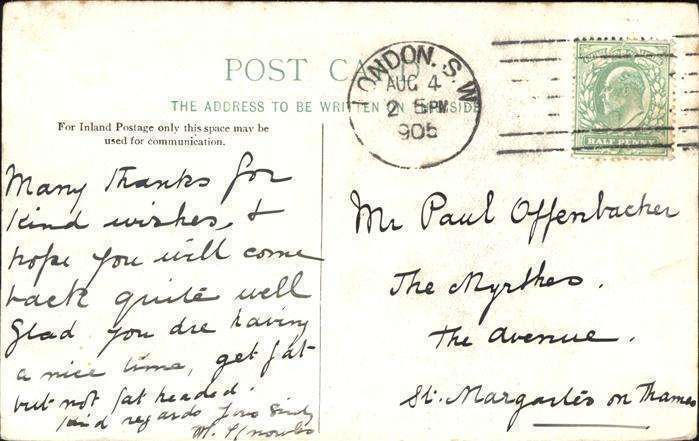 POST CARD
THE ADDRESS TO BE WRITTEN ON THIS SIDE
For Inland Postage only this space may be
used for communication.
LONDON. S.W
AUG 4
2 5 PM
905
HALF PENNY
Many thanks for
kind wishes, &
hope you will come
back quite well
Glad you are having
a nice time, get fat
but not fat headed.
kind regards Yours
M.
Mr Paul Offenbacher
The Myrthes.
The Avenue.
St. Margartes on Thames